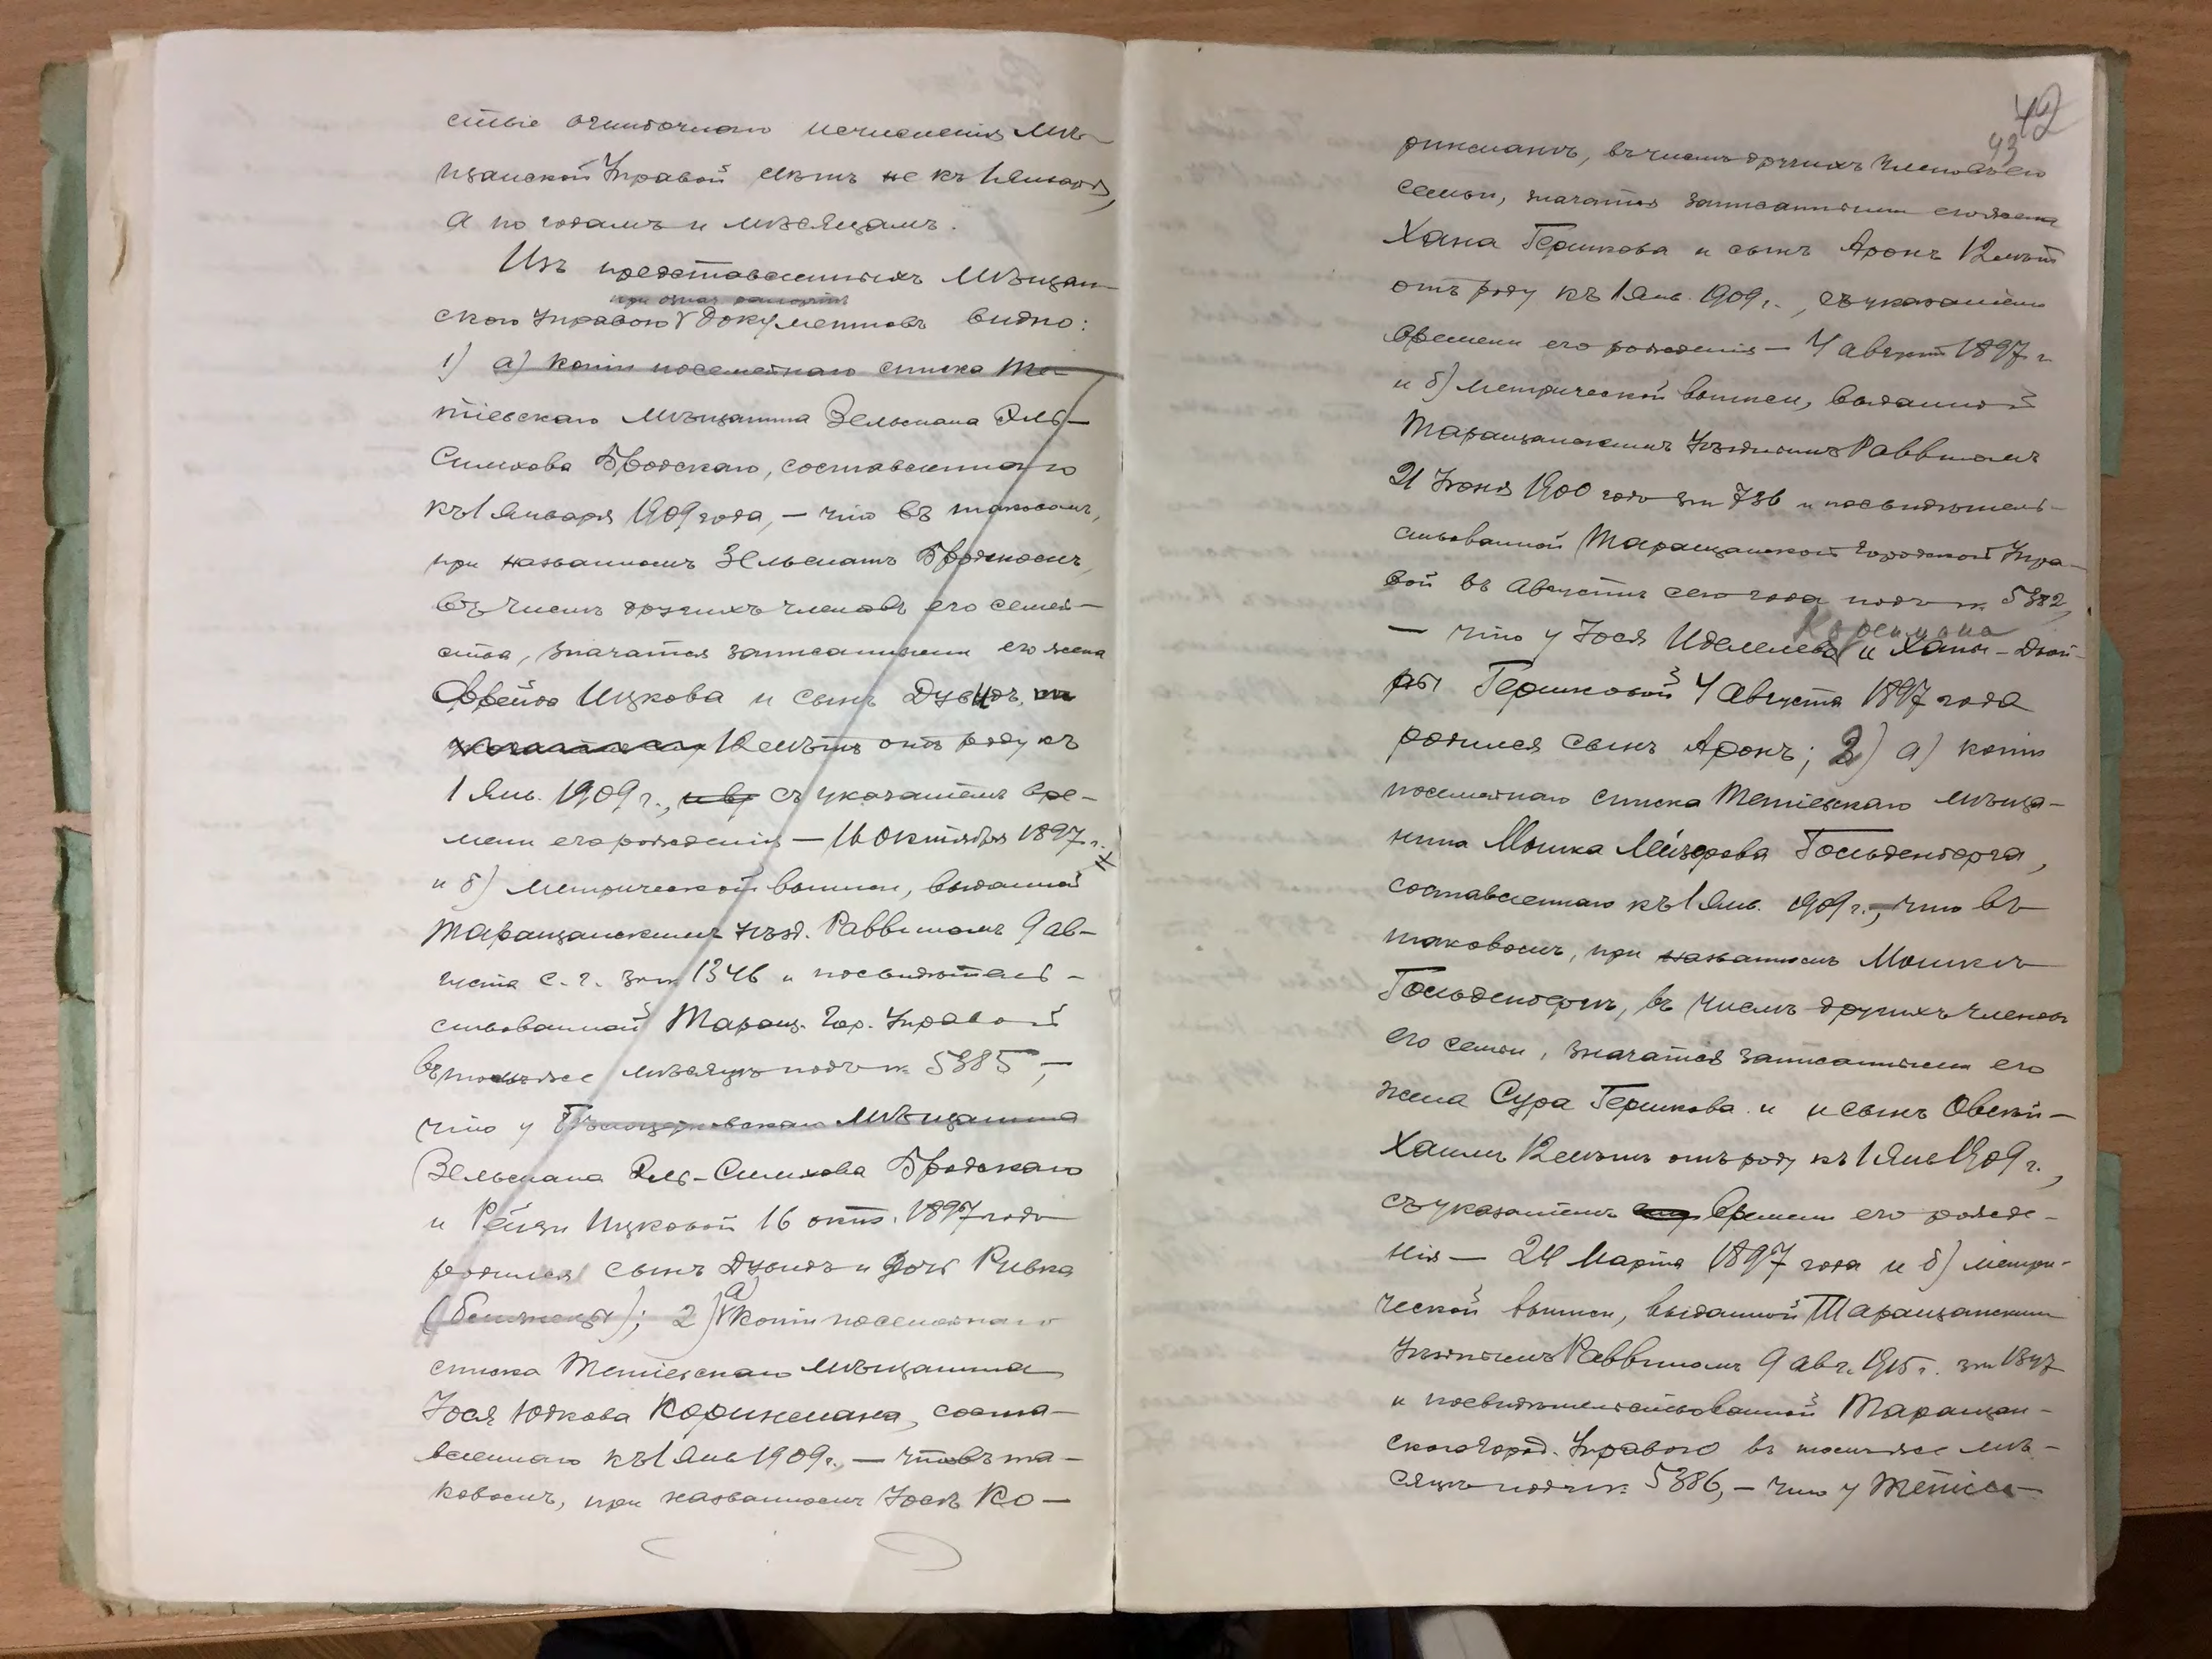 ствіе ошибочнаго исчисленія Мѣ-
щанской Управой лѣтъ не къ 1 Января,
а по годамъ и мѣсяцамъ.
Изъ представленныхъ Мѣщан-
при означ. рапортѣ
скою Управою документовъ видно:
1) а) копіи посемейнаго списка Те-
тіевскаго мѣщанина Зельмана Эль-
Симхова Бродскаго, составленнаго
къ 1 Января 1909 года, — что въ таковомъ,
при названномъ Зельманѣ Бродскомъ,
въ числѣ другихъ членовъ его семей-
ства, значатся записанными его жена
Ицкова и сынъ Дувидъ,
12 лѣтъ отъ роду къ
1 Янв. 1909 г., съ указаніемъ вре-
мени его рожденія — 16 Октября 1897 г.
и б) метрической выписи, выданной
Таращанскимъ Уѣзд. Раввиномъ 9 ав-
густа с. г. за № 1346 и посвидѣтель-
ствованной Таращ. Гор. Управой
въ томъ же мѣсяцѣ подъ № 5385, —
что у Бѣлоцерковскаго мѣщанина
Зельмана Эль-Симхова Бродскаго
и Рейзи Ицковой 16 окт. 1897 года
родился сынъ Дувидъ и дочь Ривка
(близнецы); 2) а) копіи посемейнаго
списка Тетіевскаго мѣщанина
Іося Юдкова Кориксмана, соста-
вленнаго къ 1 Янв 1909 г. — что въ та-
ковомъ, при названномъ Іосѣ Ко-
42
43
риксманѣ, въ числѣ другихъ членовъ его
семьи, значатся записанными его жена
Хана Гершкова и сынъ Аронъ 12 лѣтъ
отъ роду къ 1 Янв. 1909 г., съ указаніемъ
времени его рожденія — 4 августа 1897 г.
и б) метрической выписи, выданной
Таращанскимъ Уѣзднымъ Раввиномъ
21 Іюня 1900 года за № 736 и посвидѣтель-
ствованной Таращанской Городской Упра-
вой въ Августѣ сего года подъ № 5382,
— что у Іося Иделева и Ханы-Двой-
ры Гершковой 4 Августа 1897 года
родился сынъ Аронъ; 3) а) копіи
посемейнаго списка Тетіевскаго мѣща-
нина Мошка Мейзерова Гольденберга,
составленнаго къ 1 Янв. 1909 г., — что въ
таковомъ, при названномъ Мошкѣ
Гольденбергѣ, въ числѣ другихъ членовъ
его семьи, значатся записанными его
жена Сура Гершкова и и сынъ Овсей-
Хаимъ 12 лѣтъ отъ роду къ 1 Янв 1909 г.,
съ указаніемъ времени его рожде-
нія — 24 Марта 1897 года и б) метри-
ческой выписи, выданной Таращанскимъ
Уѣзднымъ Раввиномъ 9 авг. 1915 г. за № 1347
и посвидѣтельствованной Таращан-
скою Город. Управою въ томъ же мѣ-
сяцѣ подъ № 5386, — что у Тетіев-